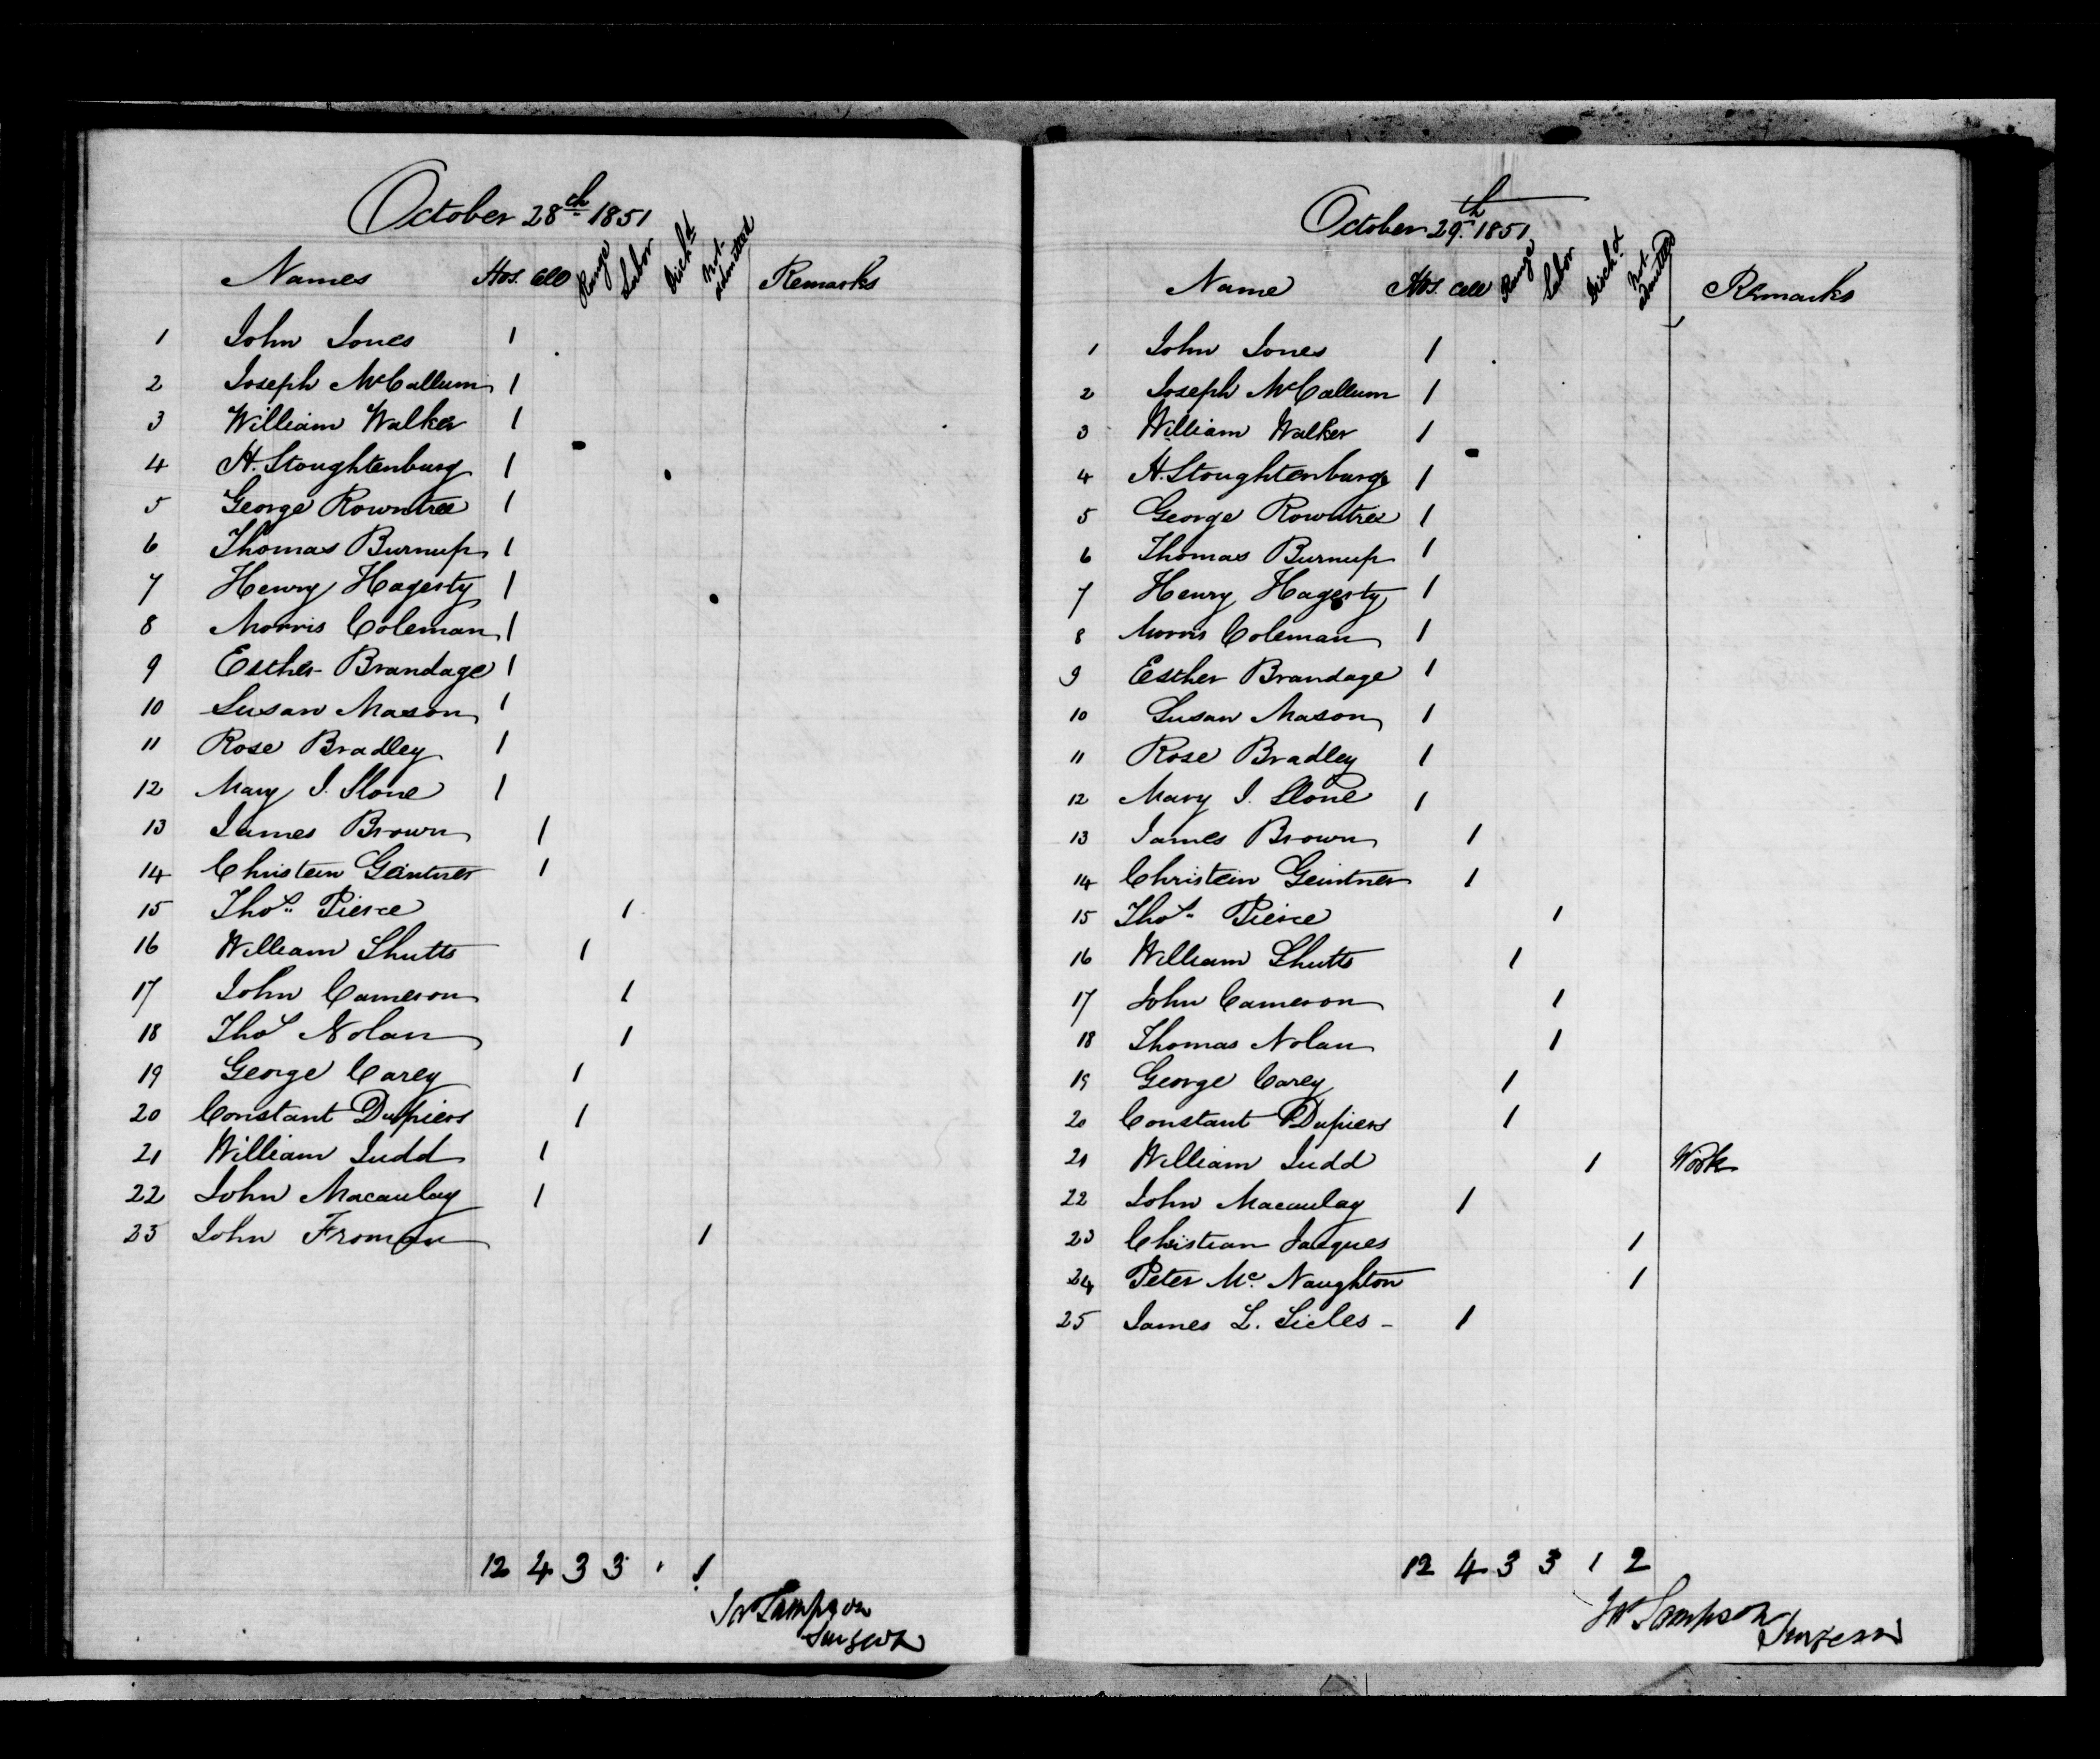 October 28th 1851
Names Hos. Cell Range Labor Disch'd Not admitted Remarks
1 John Jones 1
2 Joseph McCallum 1
3 William Walker 1
4 H. Stoughtenburg 1
5 George Rowntree 1
6 Thomas Burnup 1
7 Henry Hagerty 1
8 Morris Coleman 1
9 Esther Brandage 1
10 Susan Mason 1
11 Rose Bradley 1
12 Mary J. Slone 1
13 James Brown 1
14 Christein Geintner 1
15 Thos. Pierce 1
16 William Shutts 1
17 John Cameron 1
18 Thos Nolan 1
19 George Carey 1
20 Constant Dupiers 1
21 William Judd 1
22 John Macaulay 1
23 John Froman 1
12 4 3 3 " 1
Js Sampson
Surgeon
October 29th. 1851
Name Hos. Cell Range Labor Disch'd Not admitted Remarks
1 John Jones 1
2 Joseph McCallum 1
3 William Walker 1
4 H. Stoughtenburg 1
5 George Rowntree 1
6 Thomas Burnup 1
7 Henry Hagerty 1
8 Morris Coleman 1
9 Esther Brandage 1
10 Susan Mason 1
11 Rose Bradley 1
12 Mary J. Slone 1
13 James Brown 1
14 Christein Geintner 1
15 Thos. Pierce 1
16 William Shutts 1
17 John Cameron 1
18 Thomas Nolan 1
19 George Carey 1
20 Constant Dupiers 1
21 William Judd 1 Work
22 John Macaulay 1
23 Christian Jacques 1
24 Peter Mc. Naughton 1
25 James L. Sicles - 1
12 4 3 3 1 2
Js Sampson
Surgeon